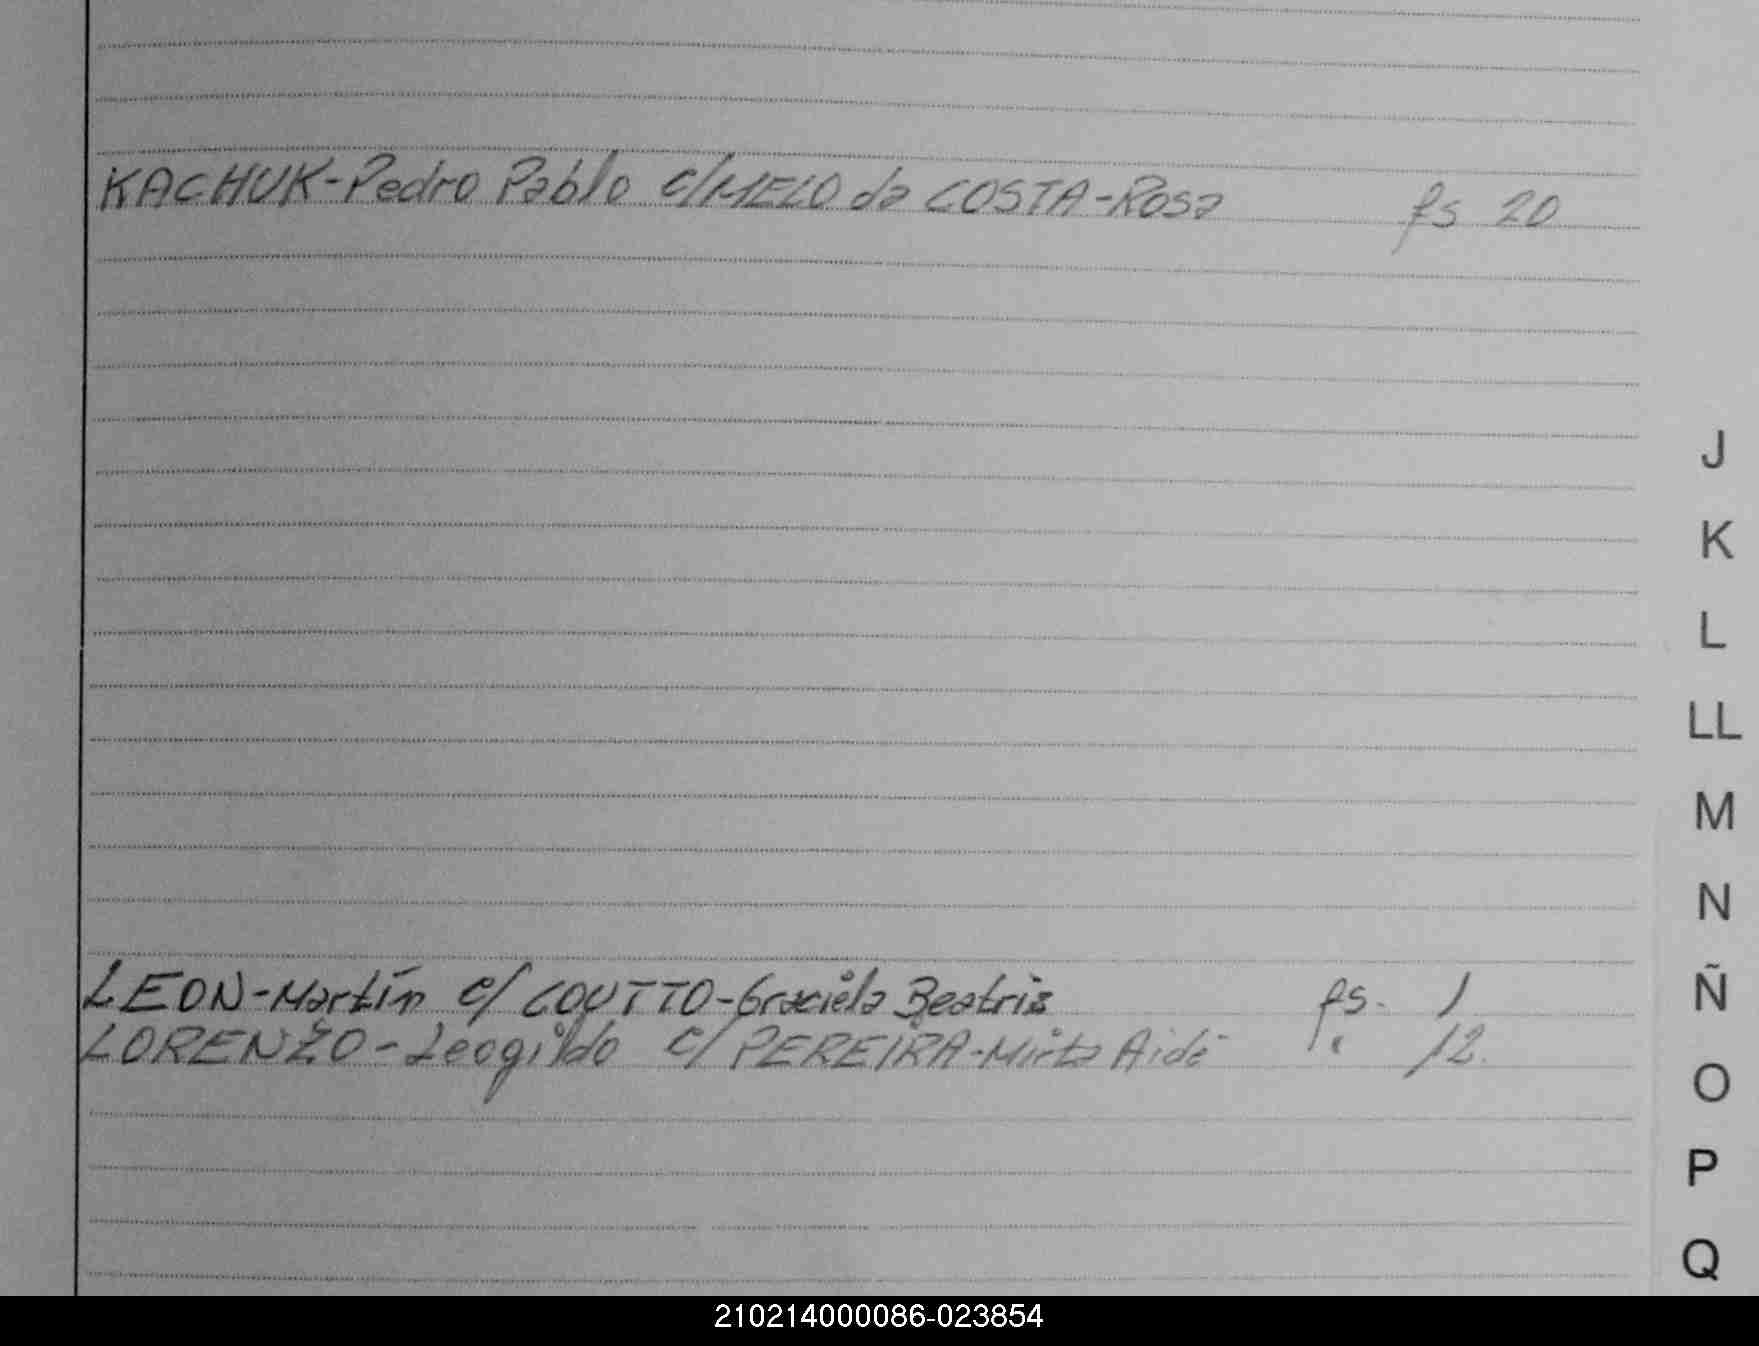 KACHUK-Pedro Pablo c/MELO da COSTA-Rosa fs 20
J
K
L
LL
M
N
LEON-Martín c/ COUTTO-Graciela Beatriz fs. 1
Ñ
LORENZO-Leogildo c/ PEREIRA-Mirta Aidé " 12.
O
P
Q
210214000086-023854